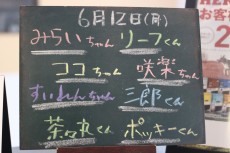 6月12日(月)
みらいちゃん リーフくん
ココちゃん 咲楽ちゃん
すいれんちゃん 三郎くん
茶々丸くん ポッキーくん
お客
2